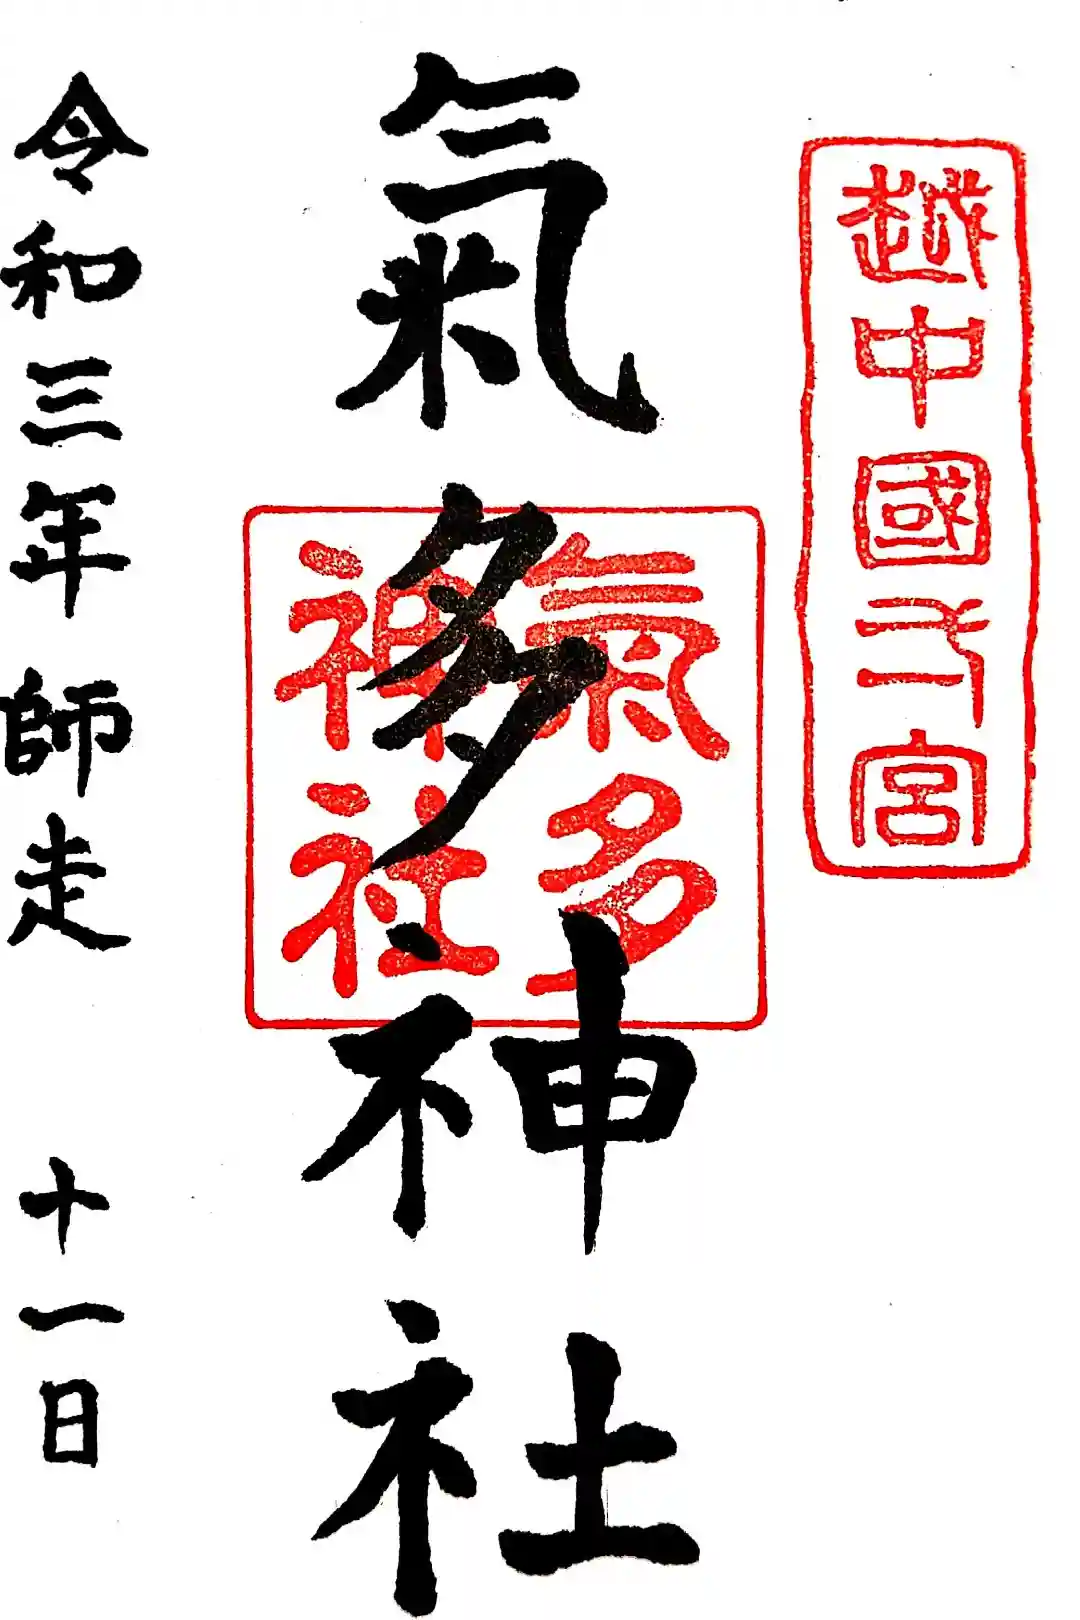 越中國弌宮
氣多神社
氣多
神社
令和三年師走十一日